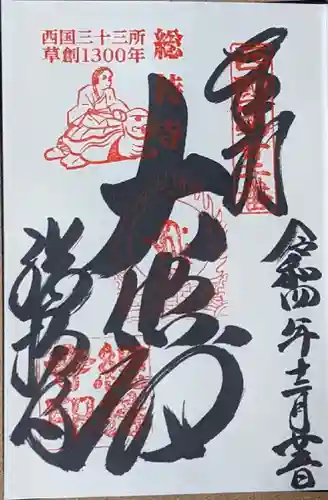 西国三十三所
草創1300年
総持寺
奉拝
大悲閣
総持寺
令和四年十二月